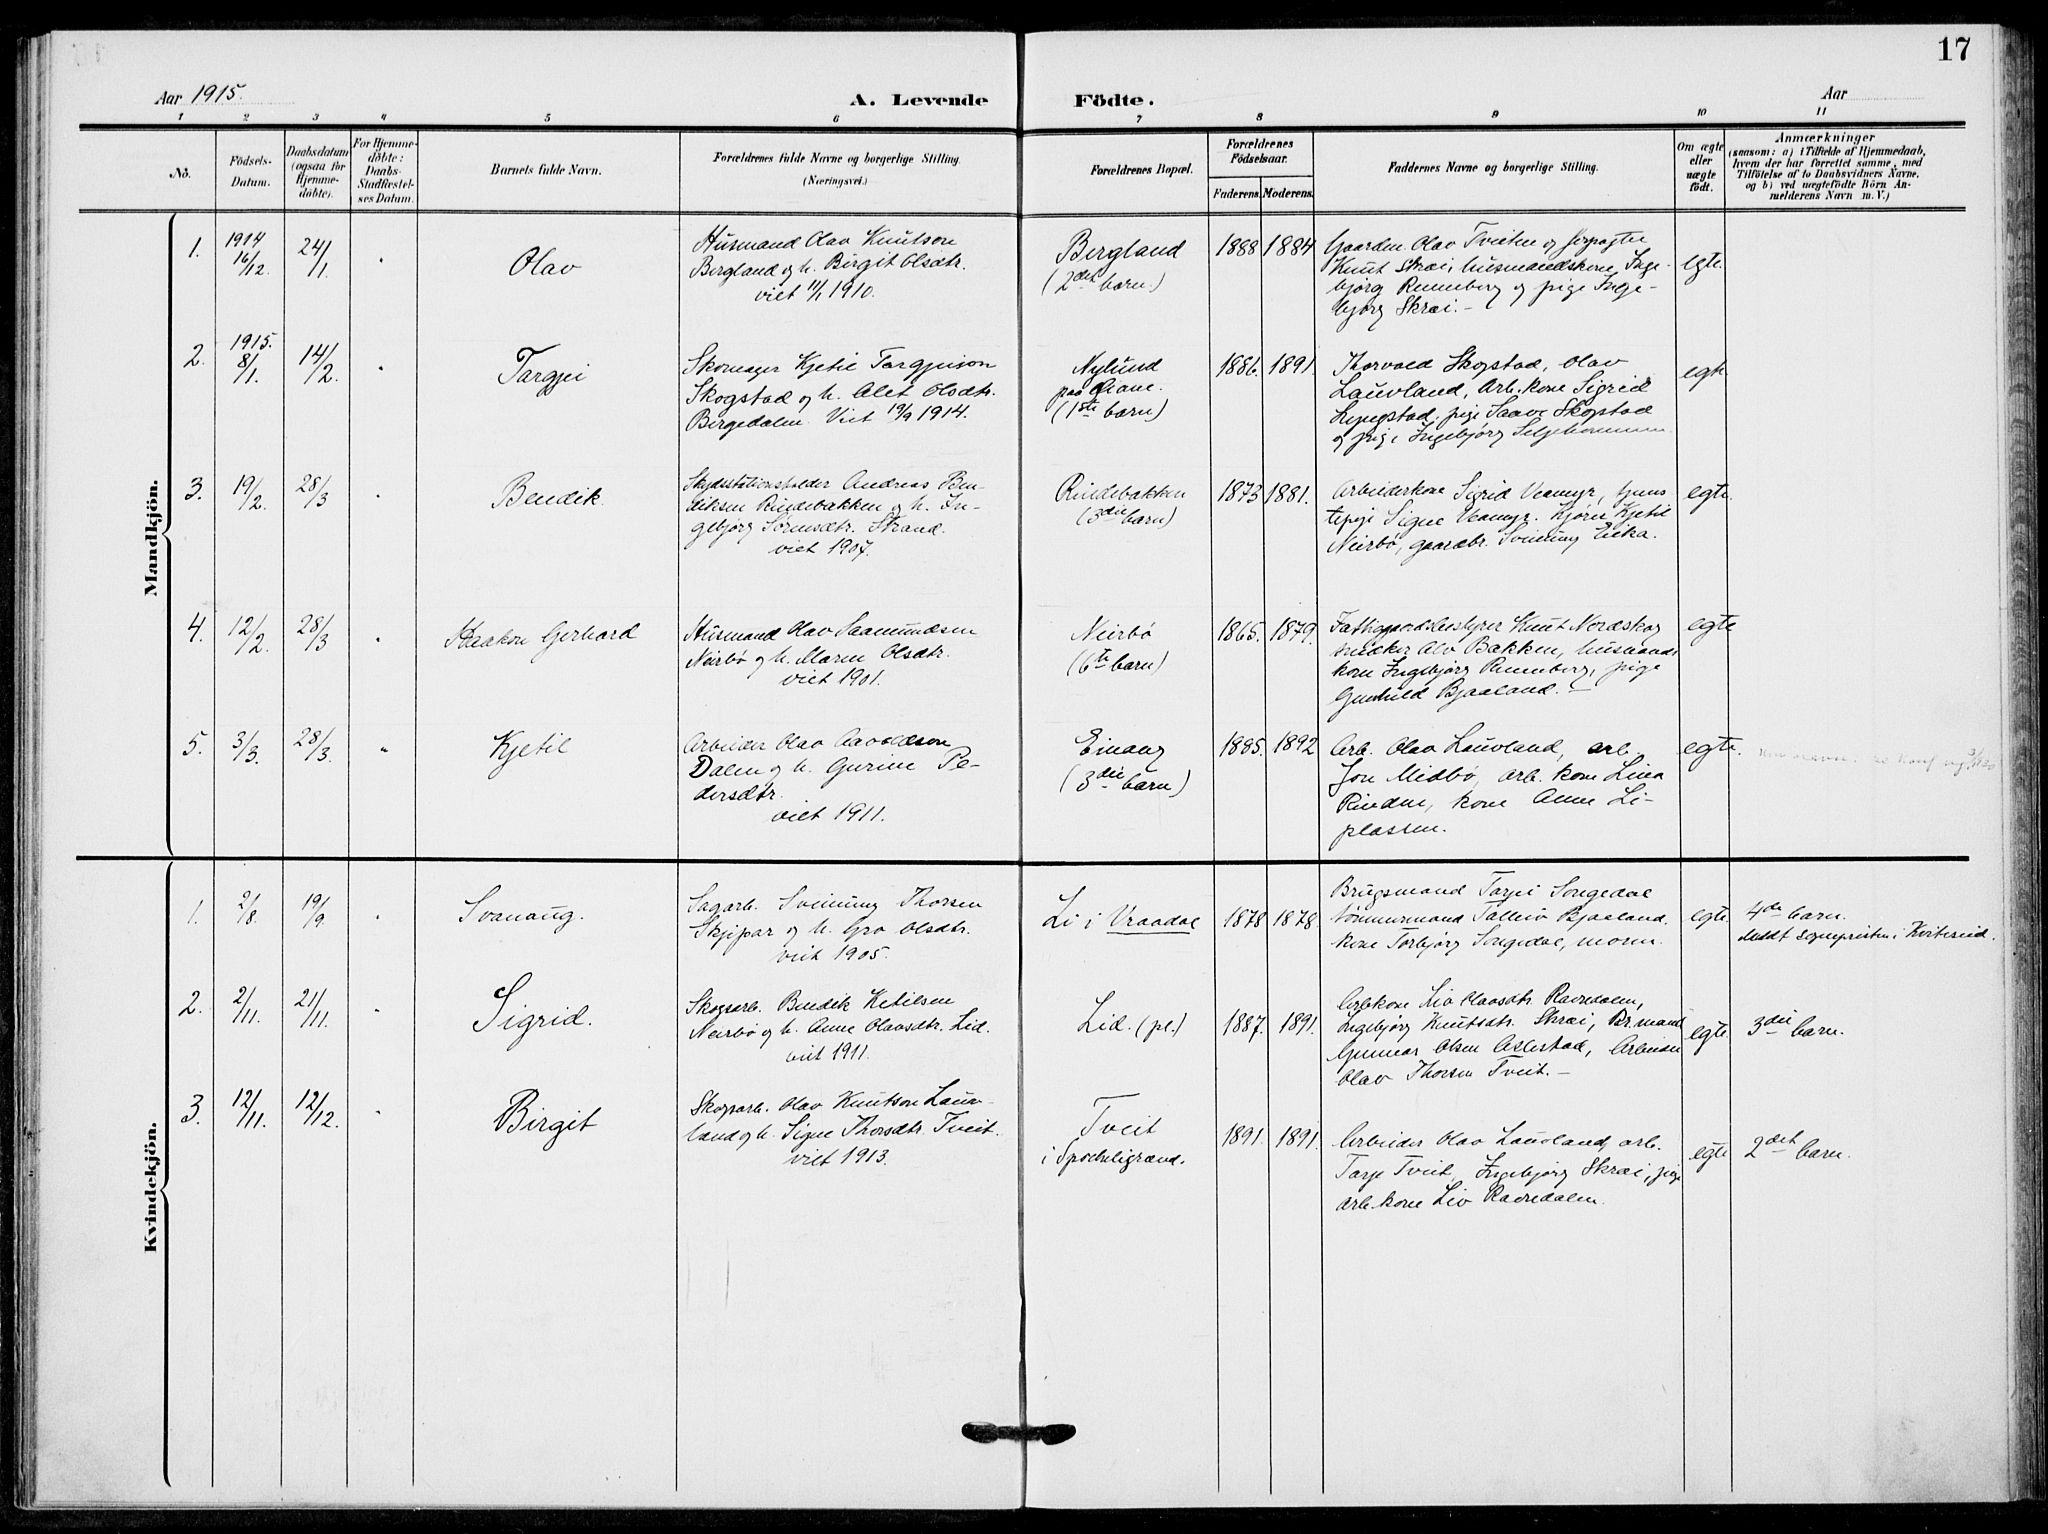 17
Aar 1915.
A. Levende Födte.
Aar
1 2 3 4 5 6 7 8 9 10 11
No.
Födsels-
Datum.
Daabsdatum
(ogsaa for
Hjemme-
døbte).
For Hjemme-
døbte:
Daabs-
Stadfæstel-
ses Datum.
Barnets fulde Navn.
Forældrenes fulde Navne og borgerlige Stilling.
(Næringsvei.)
Forældrenes Bopæl.
Forældrenes
Födselsaar.
Faderens. Moderens.
Faddernes Navne og borgerlige Stilling.
Om ægte
eller
uægte
født.
Anmærkninger
(saasom: a) i Tilfælde af Hjemmedaab,
hvem der har forrettet samme, med
Tilföielse af to Daabsvidners Navne,
og b) ved uægtefödte Börn An-
melderens Navn m. V.)
Mandkjön.
1.
1914
16/12.
24/1.
"
Olav
Husmand Olav Knutson
Bergland og h. Birgit Olsdtr.
viet 11/1 1910.
Bergland
(2det barn.)
1888 1884
Gaardm. Olav Tveiten og
Knut Skræi, husmandskone Inge-
bjørg Runneberg og pige Inge-
bjørg Skræi.-
egte.
2.
1915.
8/1.
14/2.
"
Targjei
Skomager Kjetil Targjeison
Skogstad og h. Alet Olsdtr.
Birgedalen. Viet 19/9 1914.
Nylund
paa
(1ste barn)
1886. 1891.
Thorvald Skogstad, Olav
Lauvland, Arb. kone Sigrid
Lyngstad, pige Saave Skogstad
og pige Ingebjørg
egte
3.
19/2.
28/3
"
Bendik.
Skydsstationsholder Andreas Ben-
diksen Rindebakken og h. In-
gebjørg Sørensdtr. Strand.
viet 1907.
Rindebakken
(3die barn)
1873 1881.
Arbeiderkone Sigrid Veamyr, tjenes-
tepige Signe Veamyr. Kjetil
Neirbø, gaardbr. Sveinung Eika.
egte
4.
12/2.
28/3
"
Haakon Gerhard
Husmand Olav Saamundsen
Neirbø og h. Maren Olsdtr.
viet 1901.
Neirbø
(6te barn)
1865. 1879.
Fattiggaardsbestyrer Knut Nordskog
snekker Alv Bakken, husmands
kone Ingebjørg Runneberg, pige
Gunhild Bjaaland.-
egte
5.
3/3.
28/3.
"
Kjetil
Arbeider Olav Aavoldsen
Dalen og h. Gurine Pe-
dersdtr.
viet 1911.
Einang
(3die barn)
1885. 1892
Arb. Olav Lauvland, arb.
Jon Midbø, arb. kone Lina
Rinden, kone Anne Li-
plassen.
egte.
Kvindekjön.
1.
2/8
19/9.
"
Svanaug.
Sagarb. Sveinung Thorsen
Skjipar og h. Gro Olsdtr.
viet 1905.
Li i Vraadal
1878 1878.
Brugsmand Tarjei Songedal
tømmermand Talleiv Bjaaland.
kone Torbjørg Songedal, moren.
egte.
4de barn.
Meldt sognepresten i Kviteseid.
2.
2/11.
21/11.
"
Sigrid.
Skogarb. Bendik Ketilsen
Neirbø og h. Anne Olavsdtr. Lid.
viet 1911.
Lid. (pl.)
1887. 1891.
Arb.kone Liv Olavsdtr. Ravndalen,
Ingebjørg Knutsdtr. Skræi, Br.mand
Gunnar Olsen Aslestad, Arbeider
Olav Thorsen Tveit.-
egte.
3die barn.
3.
12/11.
12/12.
"
Birgit
Skogarb. Olav Knutson Lauv-
land og h. Signe Thorsdtr. Tveit.
viet 1913.
Tveit
i
1891. 1891.
Arbeider Olav Lauvland, arb.
Tarje Tveit, Ingebjørg Skræi, pige
arb.kone Liv Ravndalen.
egte
2det barn.